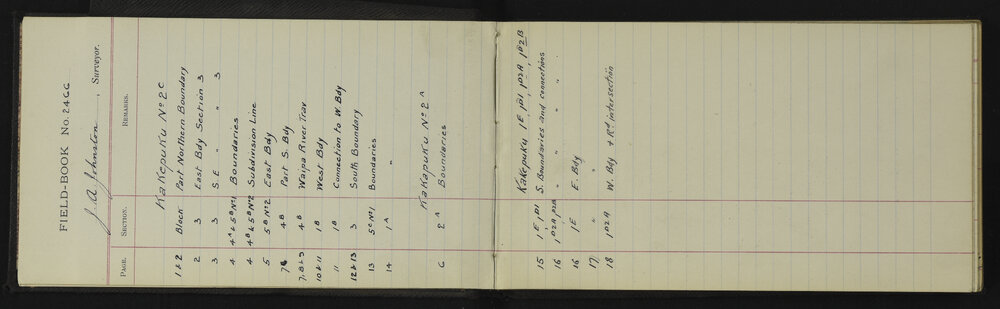 FIELD-BOOK No. 2466
J A Johnston, Surveyor.
PAGE. SECTION. REMARKS.
KaKepuKu No 2C
1 & 2 Block Part Northern Boundary
2 3 East Bdy Section 3
3 3 S.E " " 3
4 4A & 5B No 1 Boundaries
4 4B & 5B No 2 Subdivision Line
5 5B No 2 East Bdy
7 4B Part S. Bdy
7, 8 & 9 4B Waipa River Trav
10 & 11 1B West Bdy
11 1B Connection to W. Bdy
12 & 13 3 South Boundary
13 5C No 1 Boundaries
14 1A "
KaKapuKu No 2A
6 2A Boundaries
KaKepuKu 1E, 1D1, 1D2A, 1D2B
15 1E, 1D1 S. Boundaries and connections
16 1D2A, 1D2B " " " "
16 1E E. Bdy
17 " "
18 1D2A W. Bdy & Rd intersection